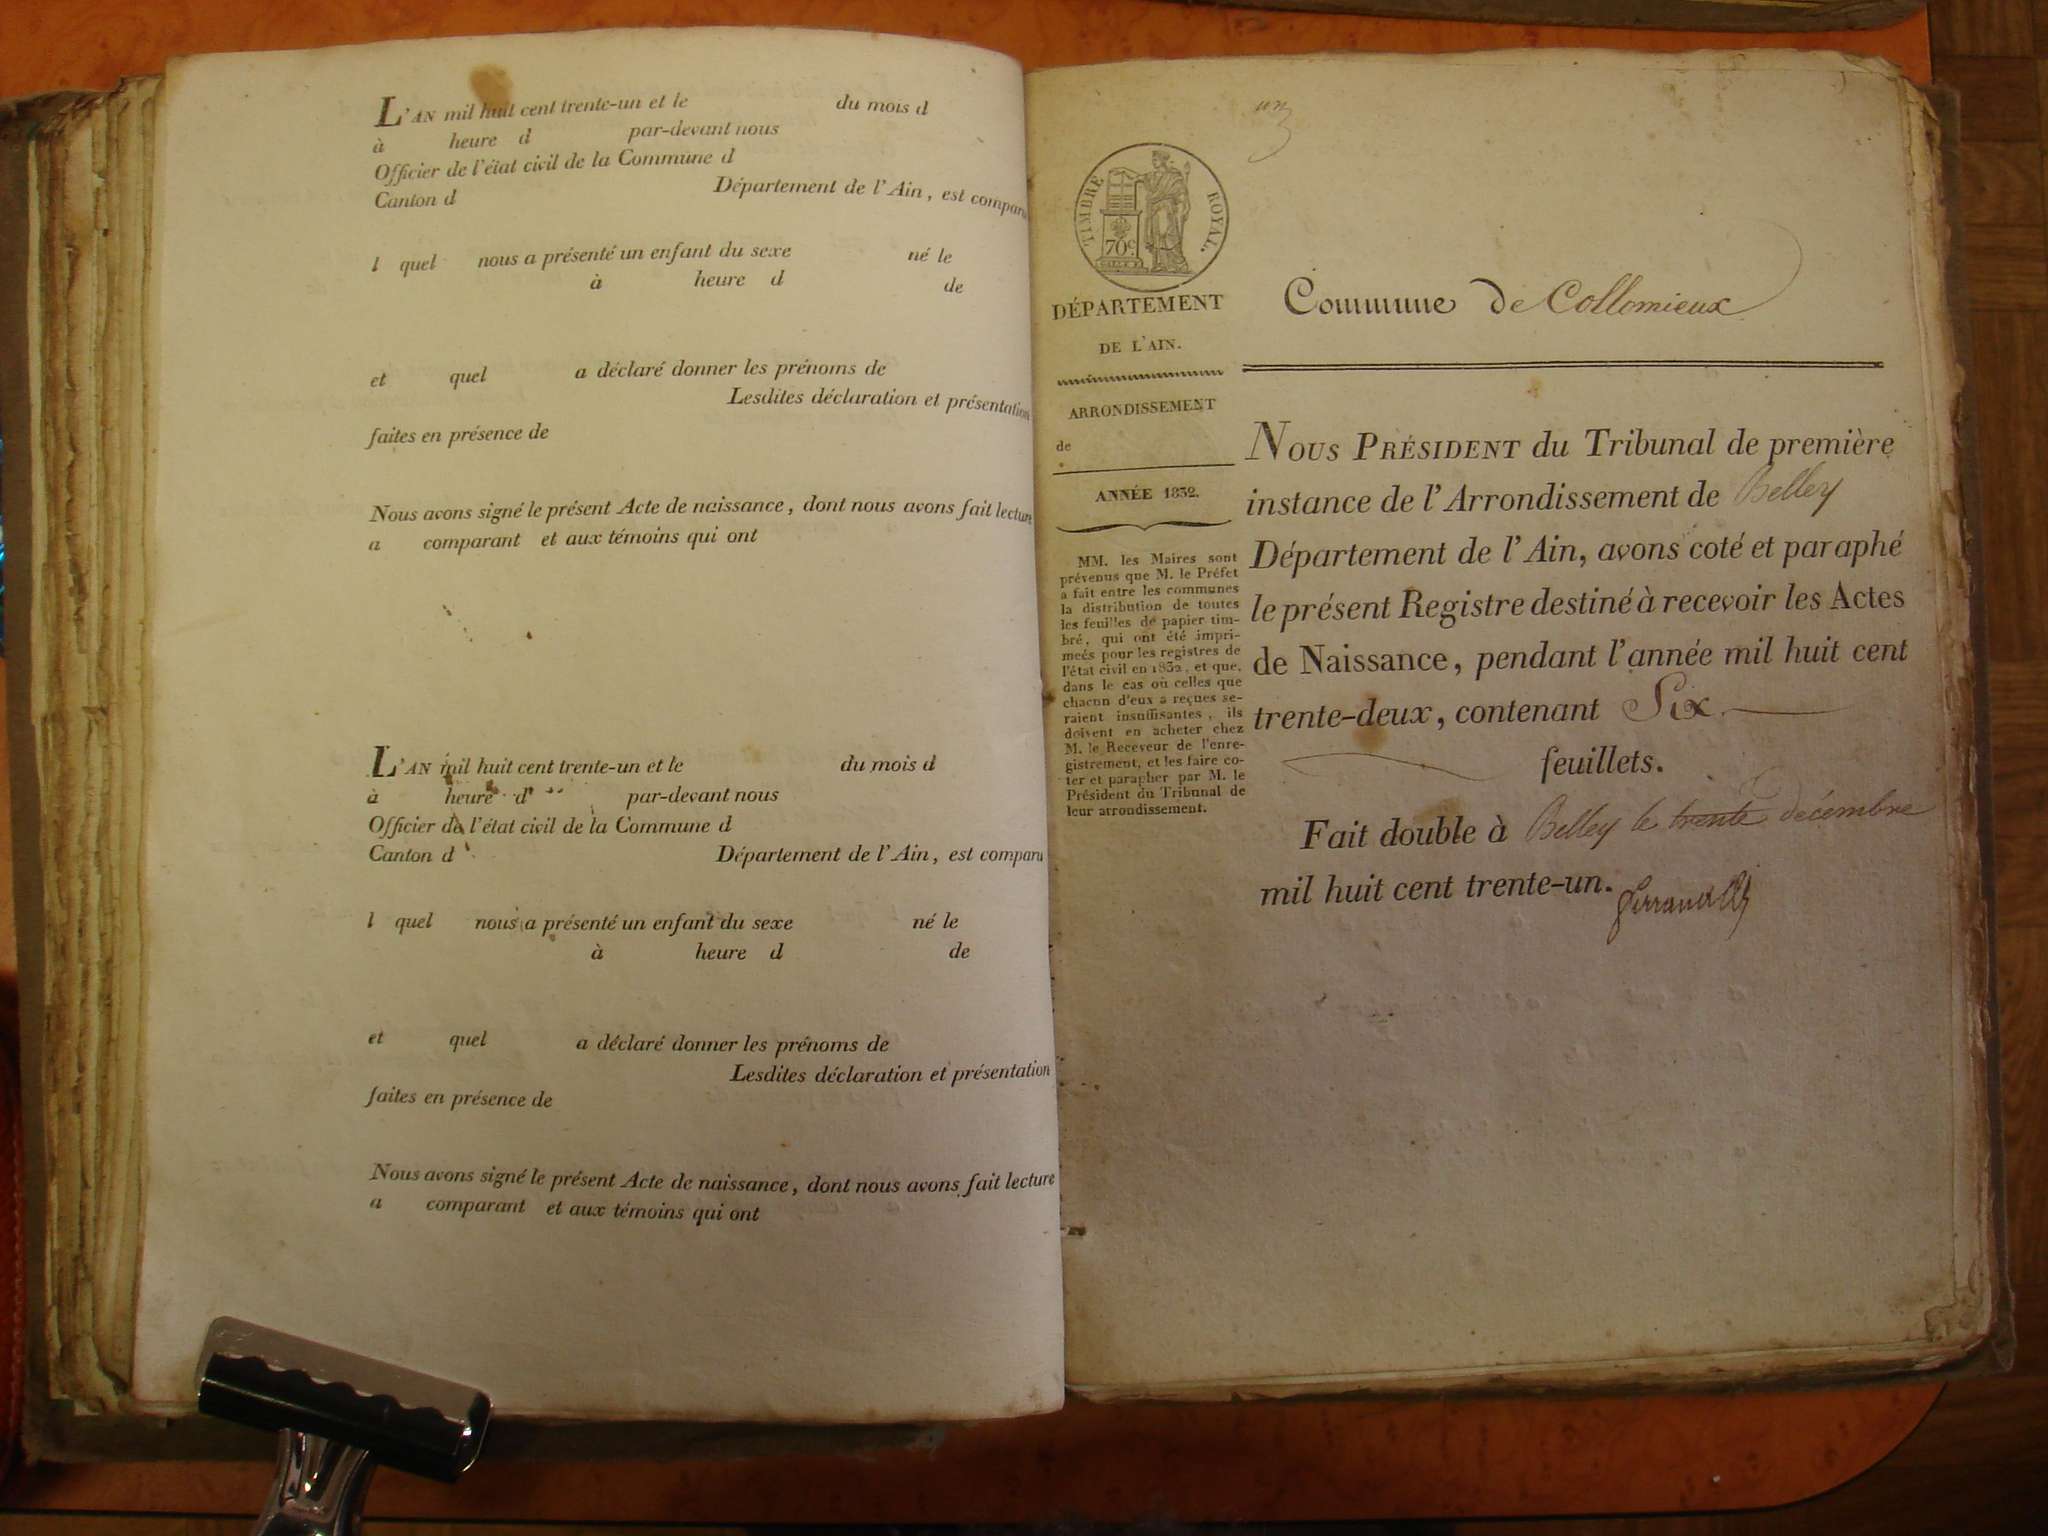 L'AN mil huit cent trente-un et le du mois d
à heure d par-devant nous
Officier de l'état civil de la Commune d
Canton d Département de l'Ain, est comparu
l quel nous a présenté un enfant du sexe né le
à heure d de
et quel a déclaré donner les prénoms de
Lesdites déclaration et présentation
faites en présence de
Nous avons signé le présent Acte de naissance, dont nous avons fait lecture
a comparant et aux témoins qui ont
L'AN mil huit cent trente-un et le du mois d
à heure d par-devant nous
Officier de l'état civil de la Commune d
Canton d Département de l'Ain, est comparu
l quel nous a présenté un enfant du sexe né le
à heure d de
et quel a déclaré donner les prénoms de
Lesdites déclaration et présentation
faites en présence de
Nous avons signé le présent Acte de naissance, dont nous avons fait lecture
a comparant et aux témoins qui ont
un
TIMBRE ROYAL.
70c.
DÉPARTEMENT
DE L'AIN.
ARRONDISSEMENT
de
ANNÉE 1832.
MM. les Maires sont
prévenus que M. le Préfet
a fait entre les communes
la distribution de toutes
les feuilles de papier tim-
bré, qui ont été impri-
meés pour les registres de
l'état civil en 1832, et que,
dans le cas où celles que
chacun d'eux a reçues se-
raient insuffisantes, ils
doivent en acheter chez
M. le Receveur de l'enre-
gistrement, et les faire co-
ter et parapher par M. le
Président du Tribunal de
leur arrondissement.
Commune de Collomieux
NOUS PRÉSIDENT du Tribunal de première
instance de l'Arrondissement de Belley
Département de l'Ain, avons coté et paraphé
le présent Registre destiné à recevoir les Actes
de Naissance, pendant l'année mil huit cent
trente-deux, contenant Six
feuillets.
Fait double à Belley le trente décembre
mil huit cent trente-un.